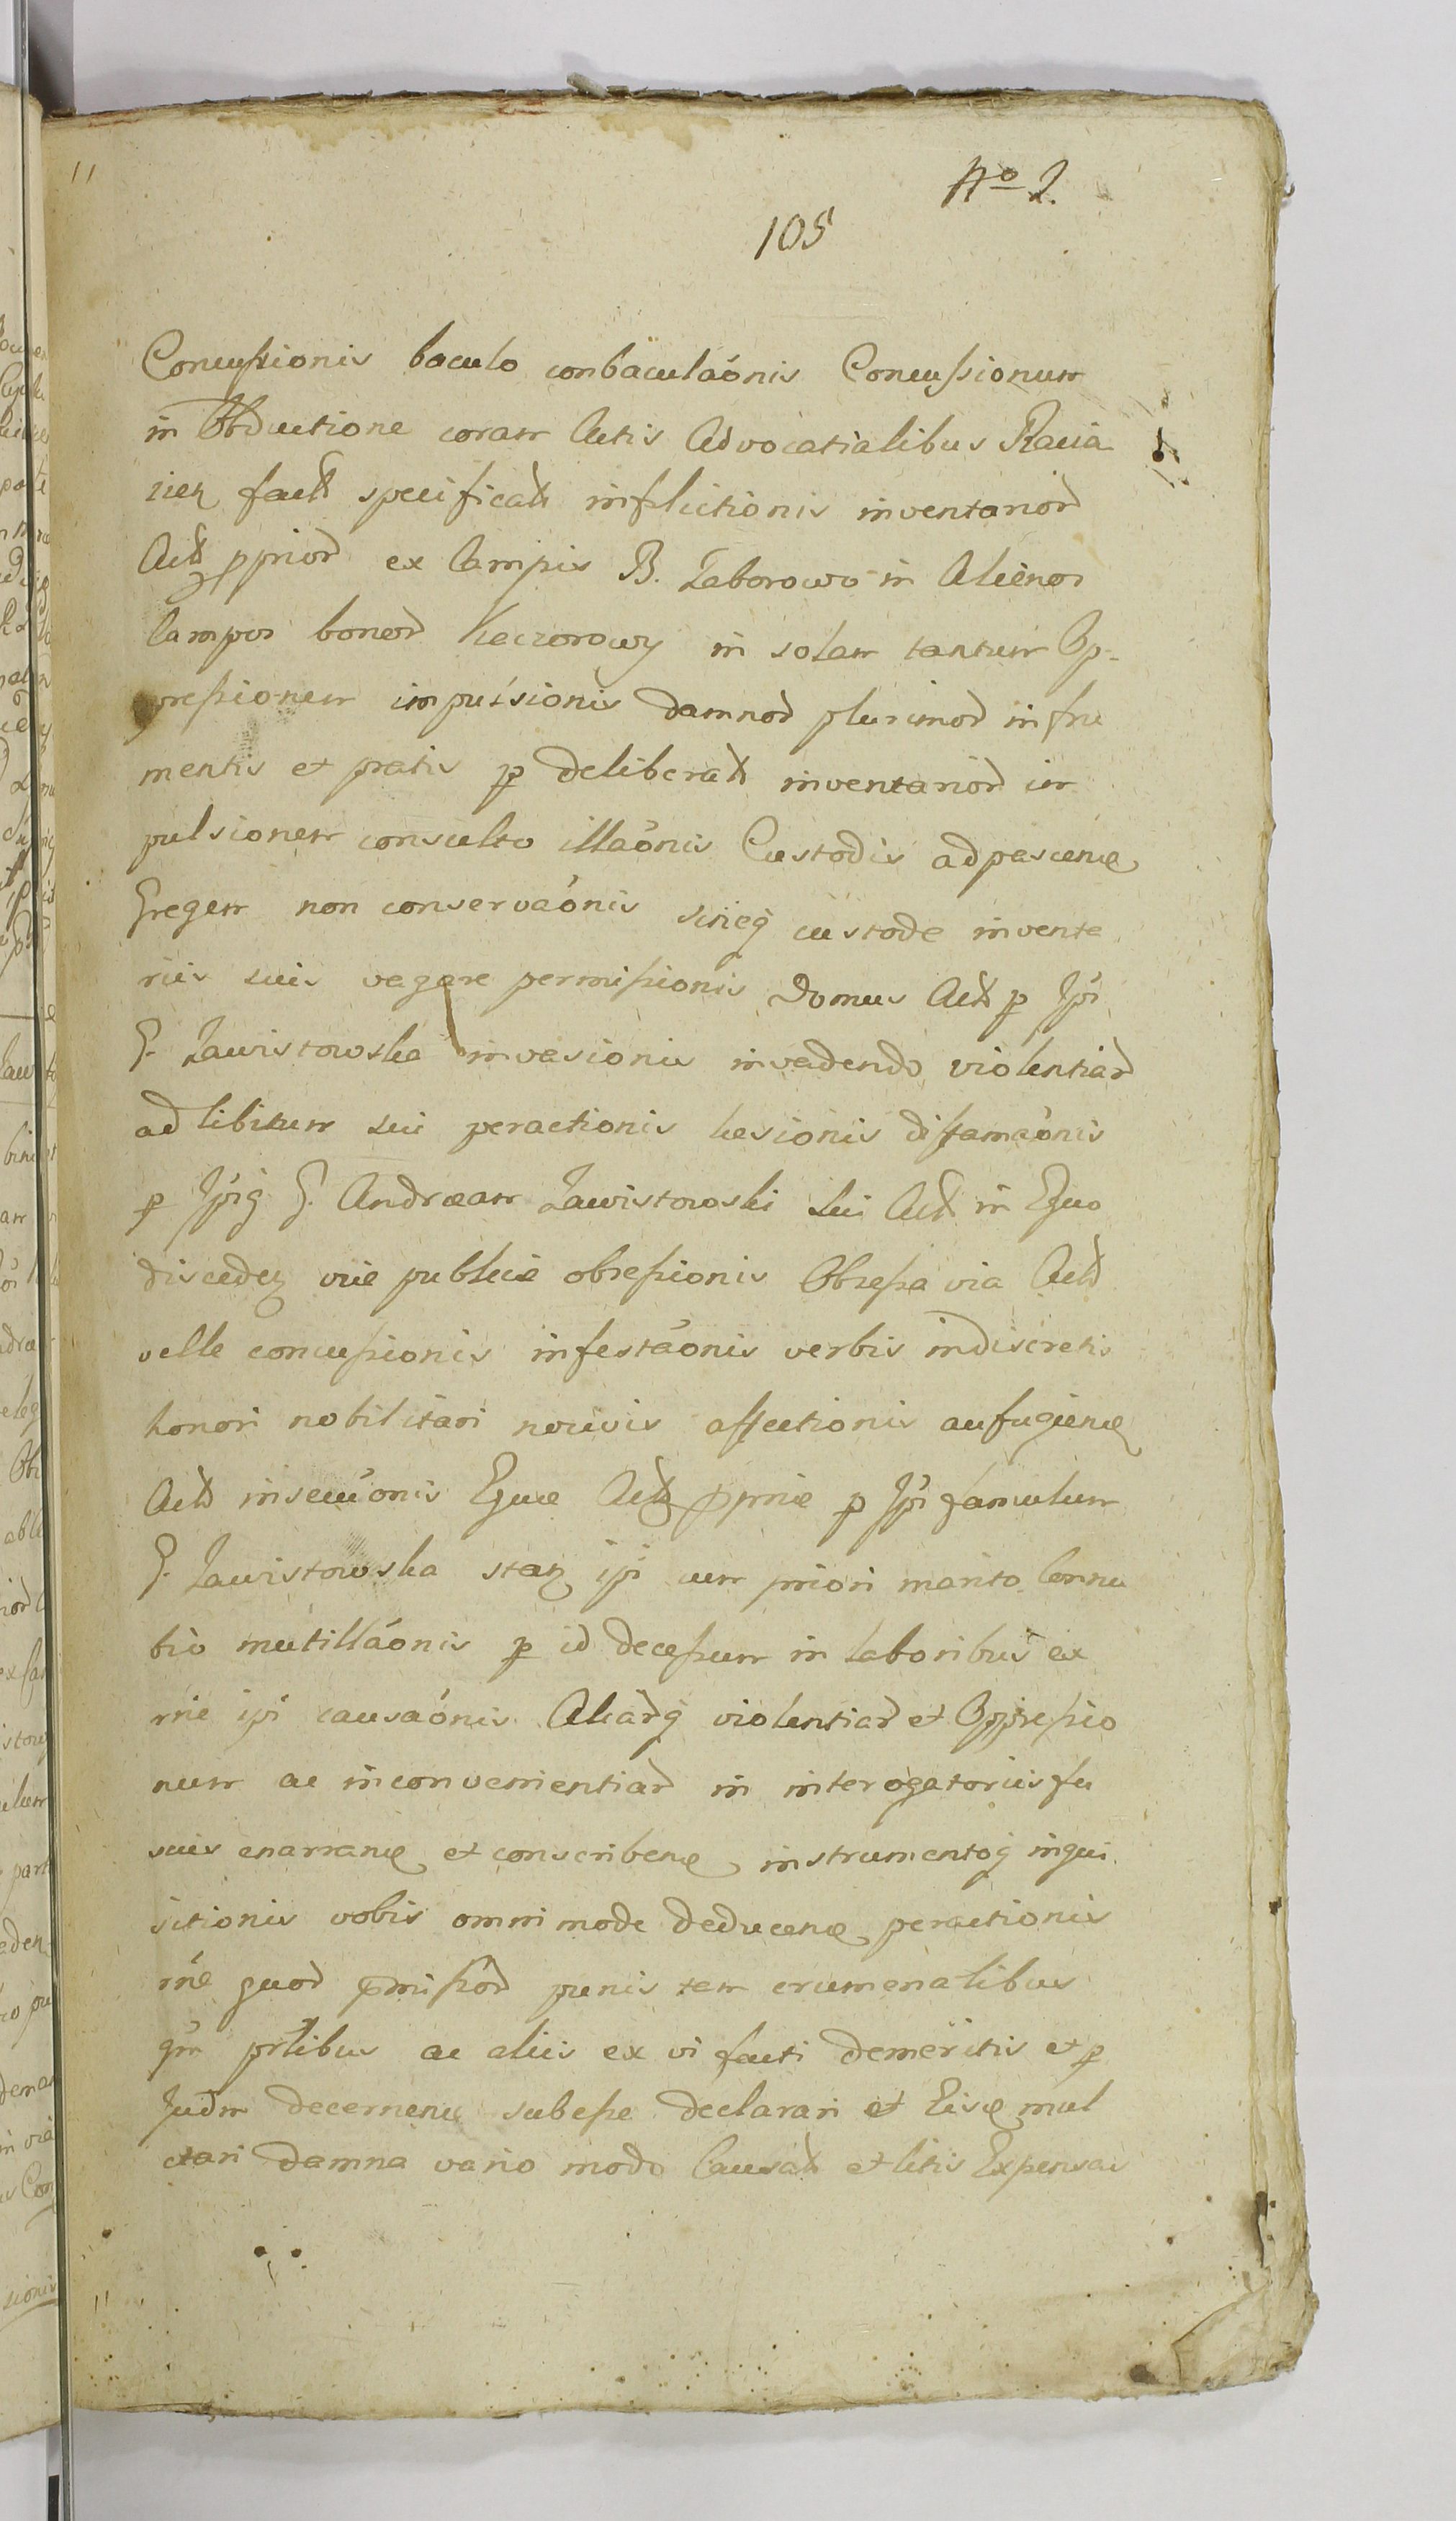 No 2.
105
Concussionis baculo conbaculaónis Concussionum
in Obductione coram Actis Advocatialibus Racią
cien fact specificat inflictionis inventarior
Act pprior ex Campis B. Zaborowo in Alienos
Campos bonor Keczorowy in solam tantum Op-
pressionem impulsionis damnor plurimor in fru
mentis et pratis p deliberat inventarior im
pulsionem consulto illaónis Custodis ad pascenđ
Gregem non conservaónis sineq custode inventa
riis suis vagare permissionis Domus Act p Ipś
G. Zawistowska invasionis invadendo violentiar
ad libitum sui peractionis laesionis diffamaónis
p Ipśq G. Andraeam Zawistowski sui Act in Equo
disceden viae publicae obsessionis Obsessa via Act
velle concussionis infestaónis verbis indiscretis
honori nobilitari nocivis affectionis aufugienđ
Act insecuónis Equae Act ppriae p Ipś famulum
G. Zawistowska stan ipi cum priori marito Connu
bio mutillaónis p id decessum in laboribus ex
rńe ipi causaónis Aliarq violentiar et Oppressio
num ac inconvenientiar in interogatoriis fu
sius enarranđ et conscribenđ instrumentoq inqui
sitionis vobis omnimode deducenđ peractionis
rńe quor pmissor penis tam crumenalibus
qm prlibus ac aliis ex vi facti demeritis et p
Judm decernenđ subesse declarari et Eisđ mul
ctari damna vario modo Causat et litis Expensas